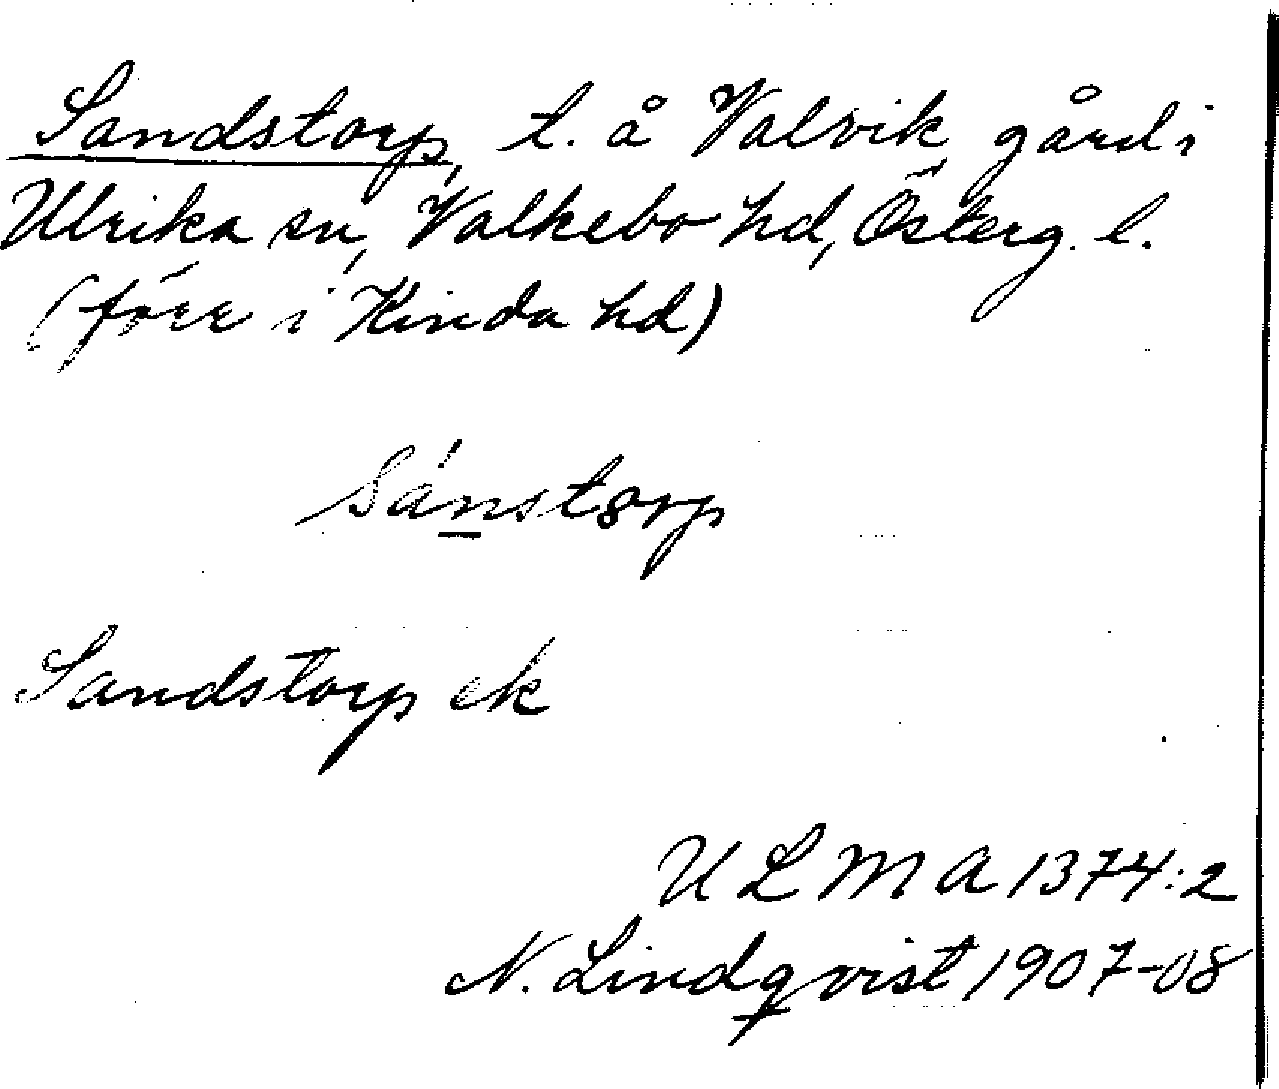 Sandstorp, t. å Valvik gård i
Ulrika sn, Valkebo hd, Österg. l.
(förr i Kinda hd)
Sánstorp
Sandstorp ek
ULMA 1374:2
N. Lindqvist 1907-08